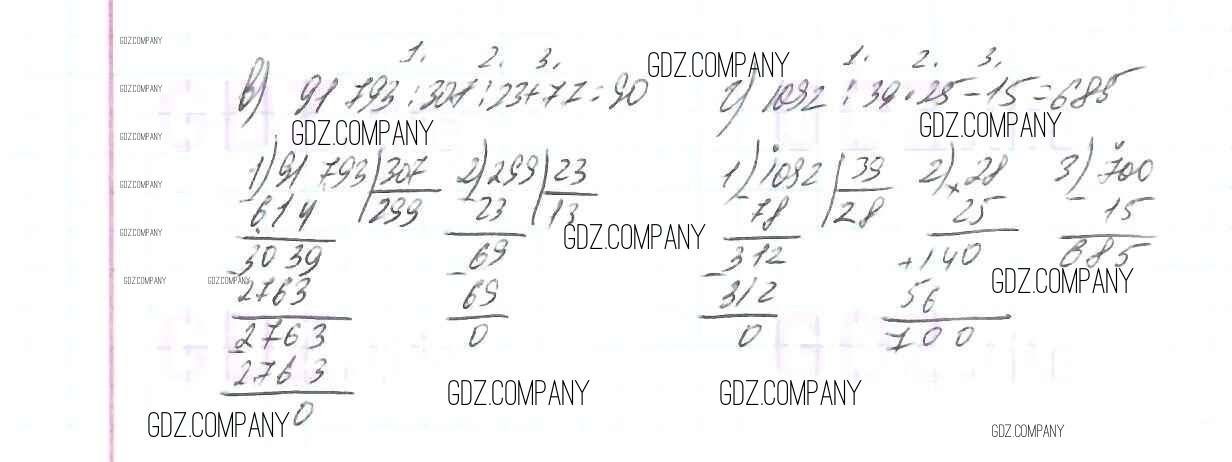 GDZ.COMPANY
1. 2. 3.
в) 91 793 : 307 : 23 + 77 = 90
GDZ.COMPANY
1. 2. 3.
г) 1092 : 39 · 25 - 15 = 685
GDZ.COMPANY
GDZ.COMPANY
GDZ.COMPANY
GDZ.COMPANY
1) 91 793 | 307
- 614 | 299
- 3039
2763
- 2763
2763
0
2) 299 | 23
- 23 | 13
- 69
69
0
1) 1092 | 39
- 78 | 28
- 312
312
0
2) × 28
25
+ 140
56
700
3) - 700
15
685
GDZ.COMPANY
GDZ.COMPANY
GDZ.COMPANY
GDZ.COMPANY
GDZ.COMPANY
GDZ.COMPANY
GDZ.COMPANY
GDZ.COMPANY
GDZ.COMPANY
GDZ.COMPANY
GDZ.COMPANY